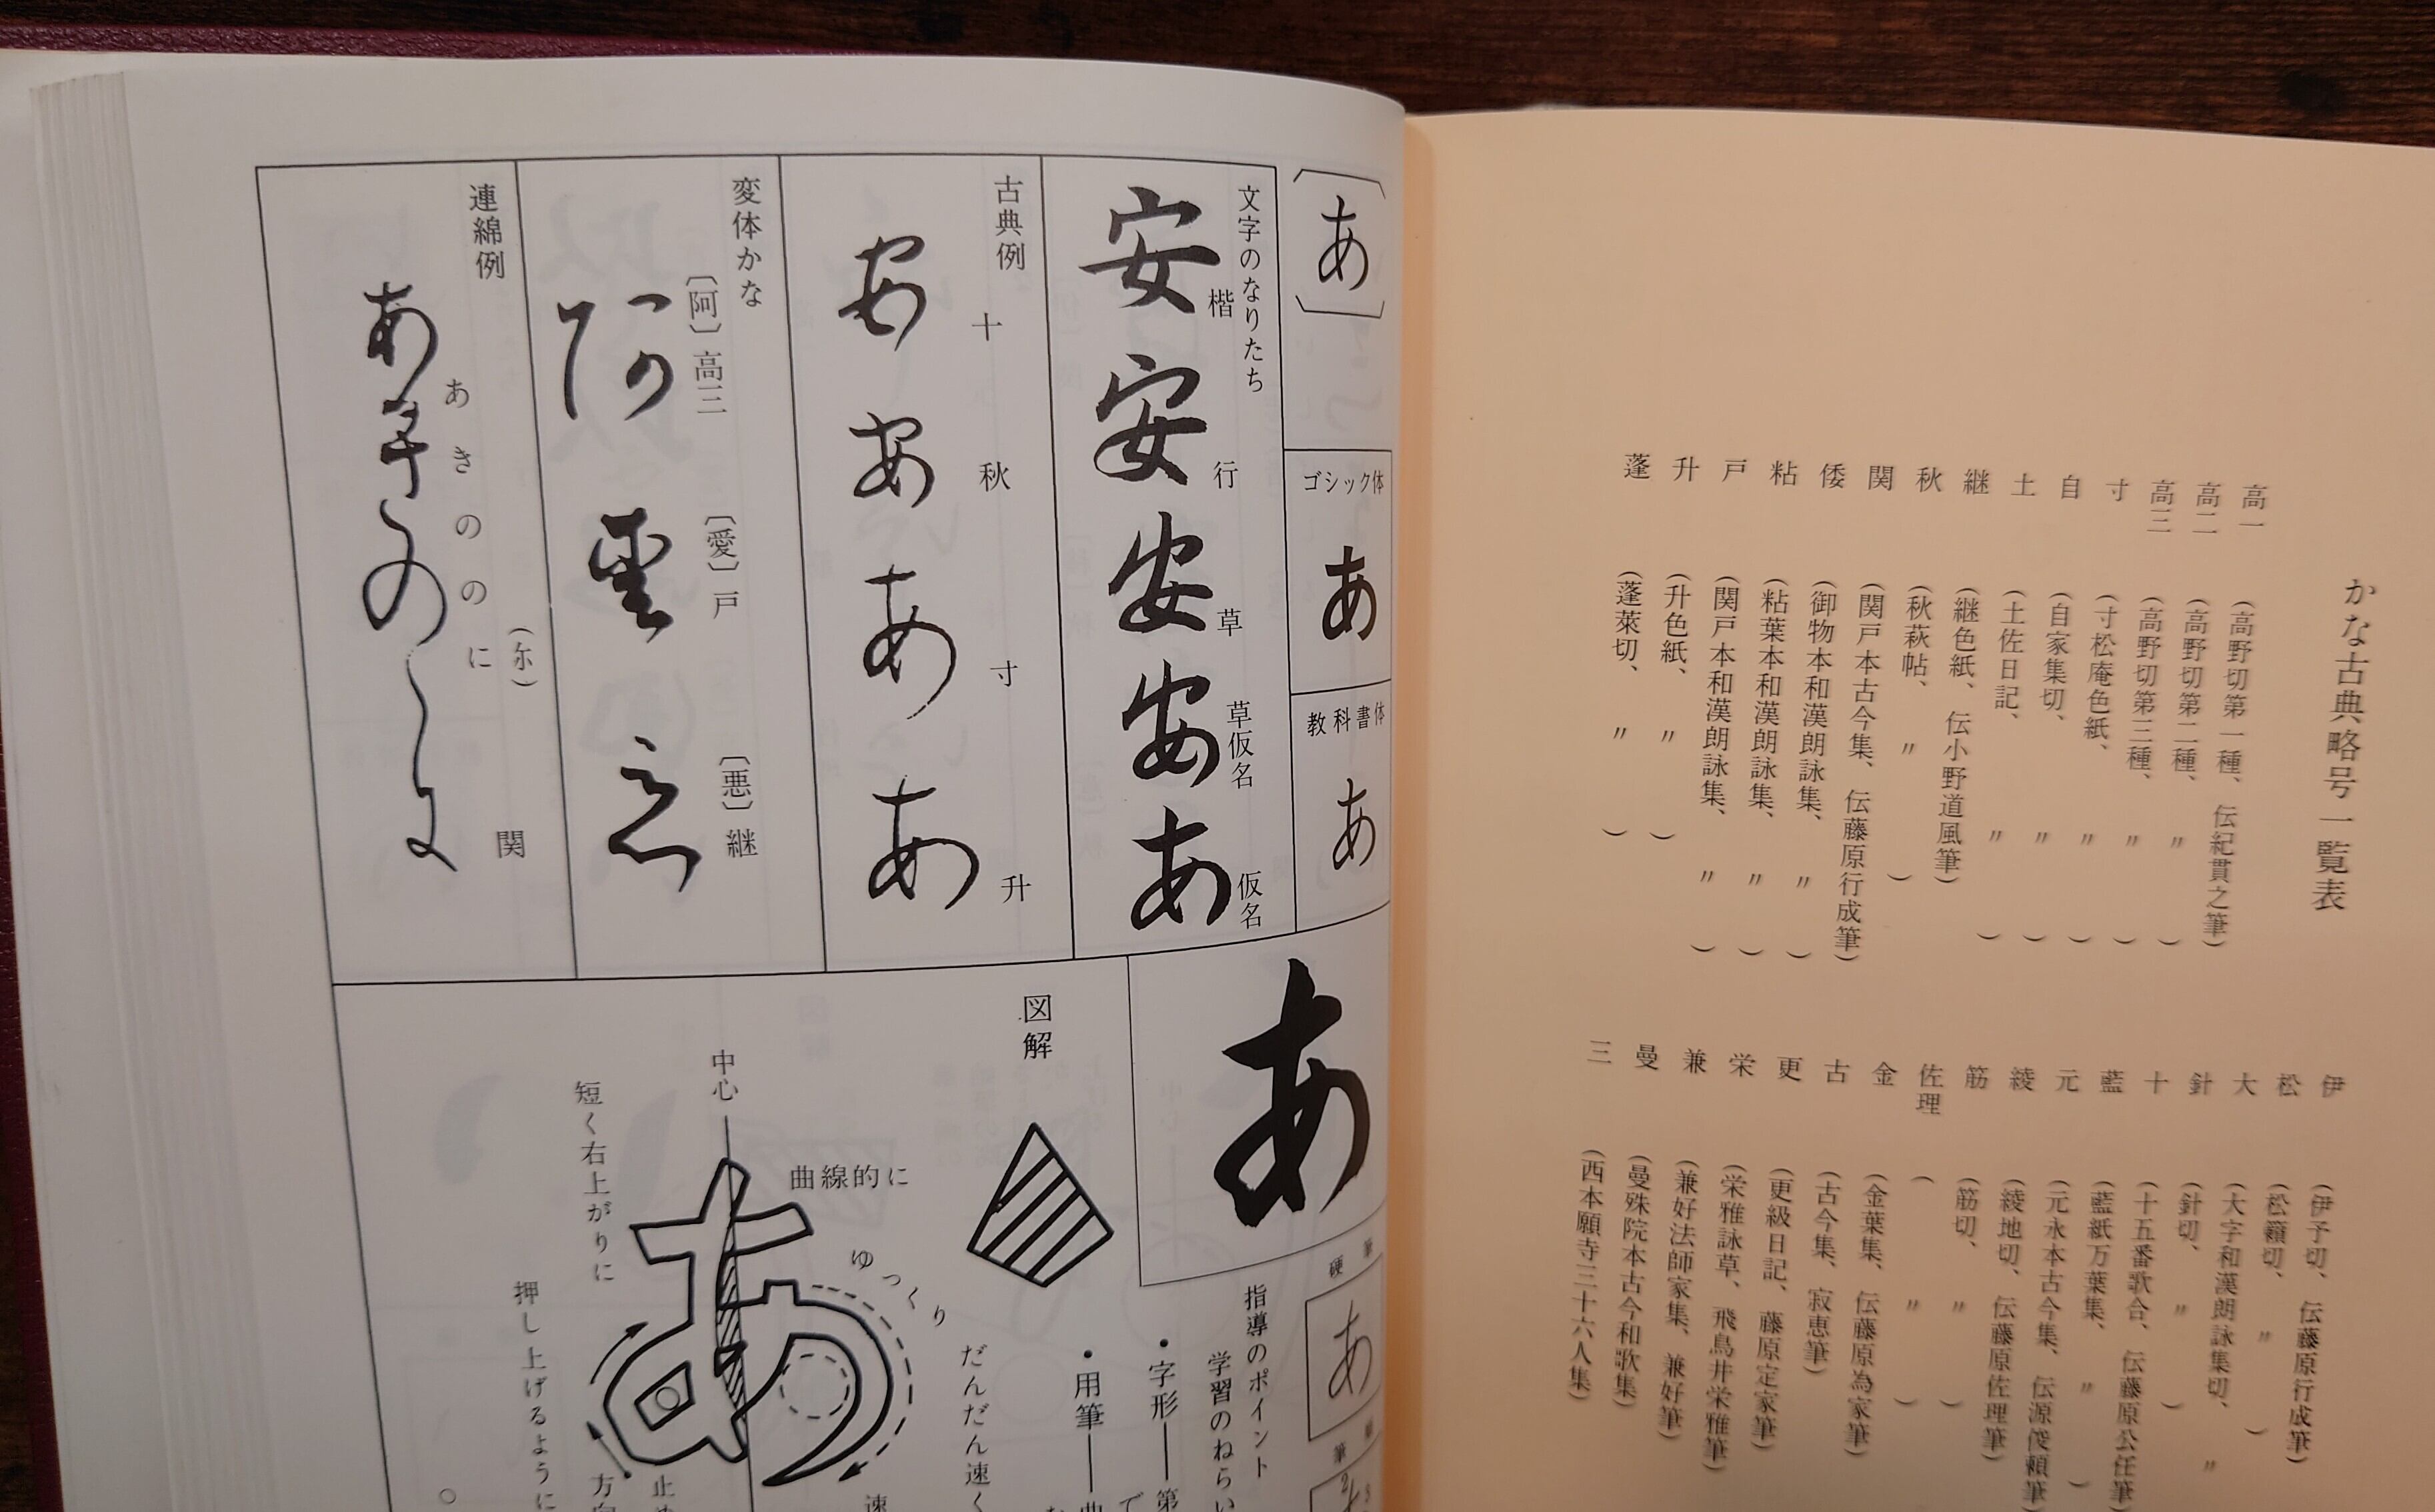 かな古典略号一覧表
高一 (高野切第一種、伝紀貫之筆)
高二 (高野切第二種、〃)
高三 (高野切第三種、〃)
寸 (寸松庵色紙、〃)
自 (自家集切、〃)
土 (土佐日記、〃)
継 (継色紙、伝小野道風筆)
秋 (秋萩帖、〃)
関 (関戸本古今集、伝藤原行成筆)
倭 (御物本和漢朗詠集、〃)
粘 (粘葉本和漢朗詠集、〃)
戸 (関戸本和漢朗詠集、〃)
升 (升色紙、〃)
蓬 (蓬萊切、〃)
伊 (伊予切、伝藤原行成筆)
松 (松籟切、〃)
大 (大字和漢朗詠集切、〃
針 (針切、〃)
十 (十五番歌合、伝藤原公任筆)
藍 (藍紙万葉集、〃)
元 (元永本古今集、伝源俊頼筆)
綾 (綾地切、伝藤原佐理筆)
筋 (筋切、〃)
佐理 (〃)
金 (金葉集、伝藤原為家筆)
古 (古今集、寂恵筆)
更 (更級日記、藤原定家筆)
栄 (栄雅詠草、飛鳥井栄雅筆)
兼 (兼好法師家集、兼好筆)
曼 (曼殊院本古今和歌集)
三 (西本願寺三十六人集)
〔あ〕
ゴシック体
あ
教科書体
あ
文字のなりたち
安 楷
安 行
安 草
安 草仮名
あ 仮名
古典例
あ 十
あ 秋
あ 寸
あ 升
変体かな
〔阿〕高三
阿
〔愛〕戸
愛
〔悪〕継
悪
連綿例
あきののに
(尓)
関
あ
硬筆
あ
指導のポイント
学習のねらい
・字形──第
・用筆──曲
図解
中心
曲線的に
短く右上がりに
ゆっくり
だんだん速く
押し上げるように
方向
速